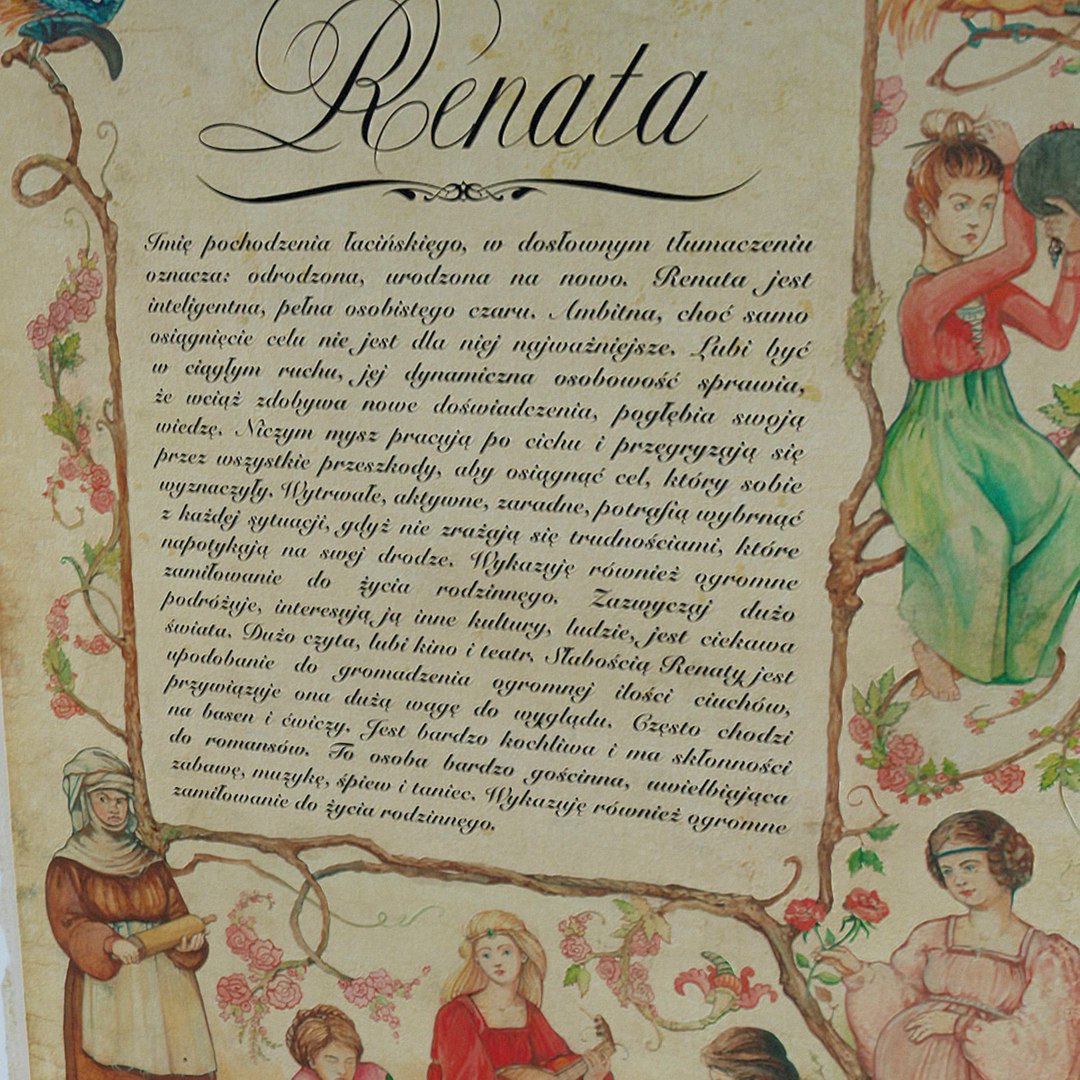 Renata
Imię pochodzenia łacińskiego, w dosłownym tłumaczeniu
oznacza: odrodzona, urodzona na nowo. Renata jest
inteligentna, pełna osobistego czaru. Ambitna, choć samo
osiągnięcie celu nie jest dla niej najważniejsze. Lubi być
w ciągłym ruchu, jej dynamiczna osobowość sprawia,
że wciąż zdobywa nowe doświadczenia, pogłębia swoją
wiedzę. Niczym mysz pracują po cichu i przegryzają się
przez wszystkie przeszkody, aby osiągnąć cel, który sobie
wyznaczyły. Wytrwałe, aktywne, zaradne, potrafią wybrnąć
z każdej sytuacji, gdyż nie zrażają się trudnościami, które
napotykają na swej drodze. Wykazuję również ogromne
zamiłowanie do życia rodzinnego. Zazwyczaj dużo
podróżuje, interesują ją inne kultury, ludzie, jest ciekawa
świata. Dużo czyta, lubi kino i teatr. Słabością Renaty jest
upodobanie do gromadzenia ogromnej ilości ciuchów,
przywiązuje ona dużą wagę do wyglądu. Często chodzi
na basen i ćwiczy. Jest bardzo kochliwa i ma skłonności
do romansów. To osoba bardzo gościnna, uwielbiająca
zabawę, muzykę, śpiew i taniec. Wykazuję również ogromne
zamiłowanie do życia rodzinnego.